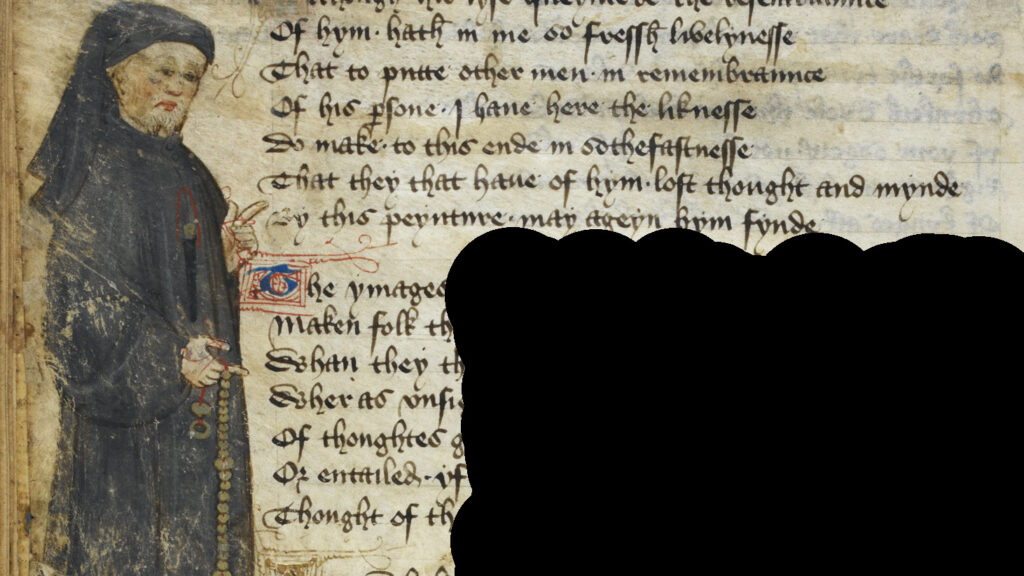 his lyfe the resemblaunce
Of hym· hath in me so fressh livelynesse
That to putte other men· in remembraunce
Of his psone· I haue here the liknesse
Do make· to this ende in sothefastnesse
That they that haue of hym· lost thought and mynde
By this peynture· may ageyn hym fynde
The ymages
Maken folk
Whan they
Wher as
Of thoughtes
Or entailed· yf
Thought of